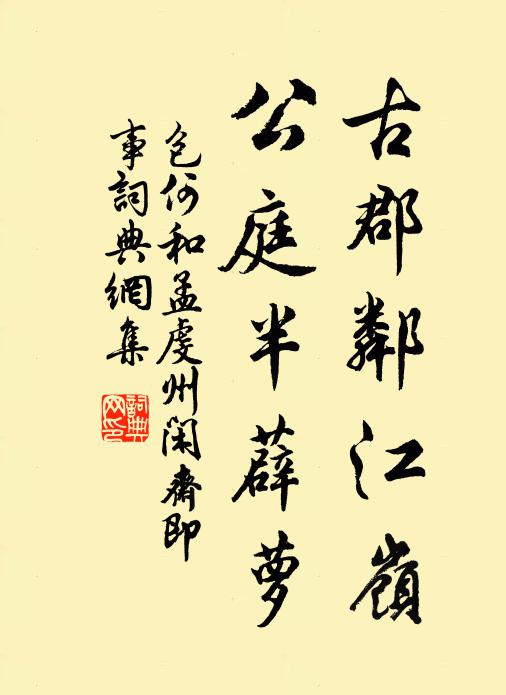 古郡鄰江嶺
公庭半薜蘿
包何和孟虔州閑齋即
事詞典網集
詞典
网印